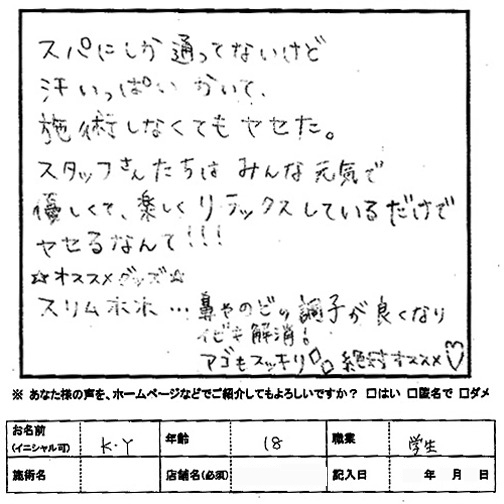 スパにしか通ってないけど
汗いっぱいかいて、
施術しなくてもヤセた。
スタッフさんたちはみんな元気で
優しくて、楽しくリラックスしているだけで
ヤセるなんて!!!
☆オススメグッズ☆
スリムホホ…鼻やのどの調子が良くなり
イビキ解消!
アゴもスッキリ 絶対オススメ♡
※ あなた様の声を、ホームページなどでご紹介してもよろしいですか? □はい □匿名で □ダメ
お名前 (イニシャル可) K・Y 年齢 18 職業 学生
施術名 店舗名(必須) 記入日 年 月 日